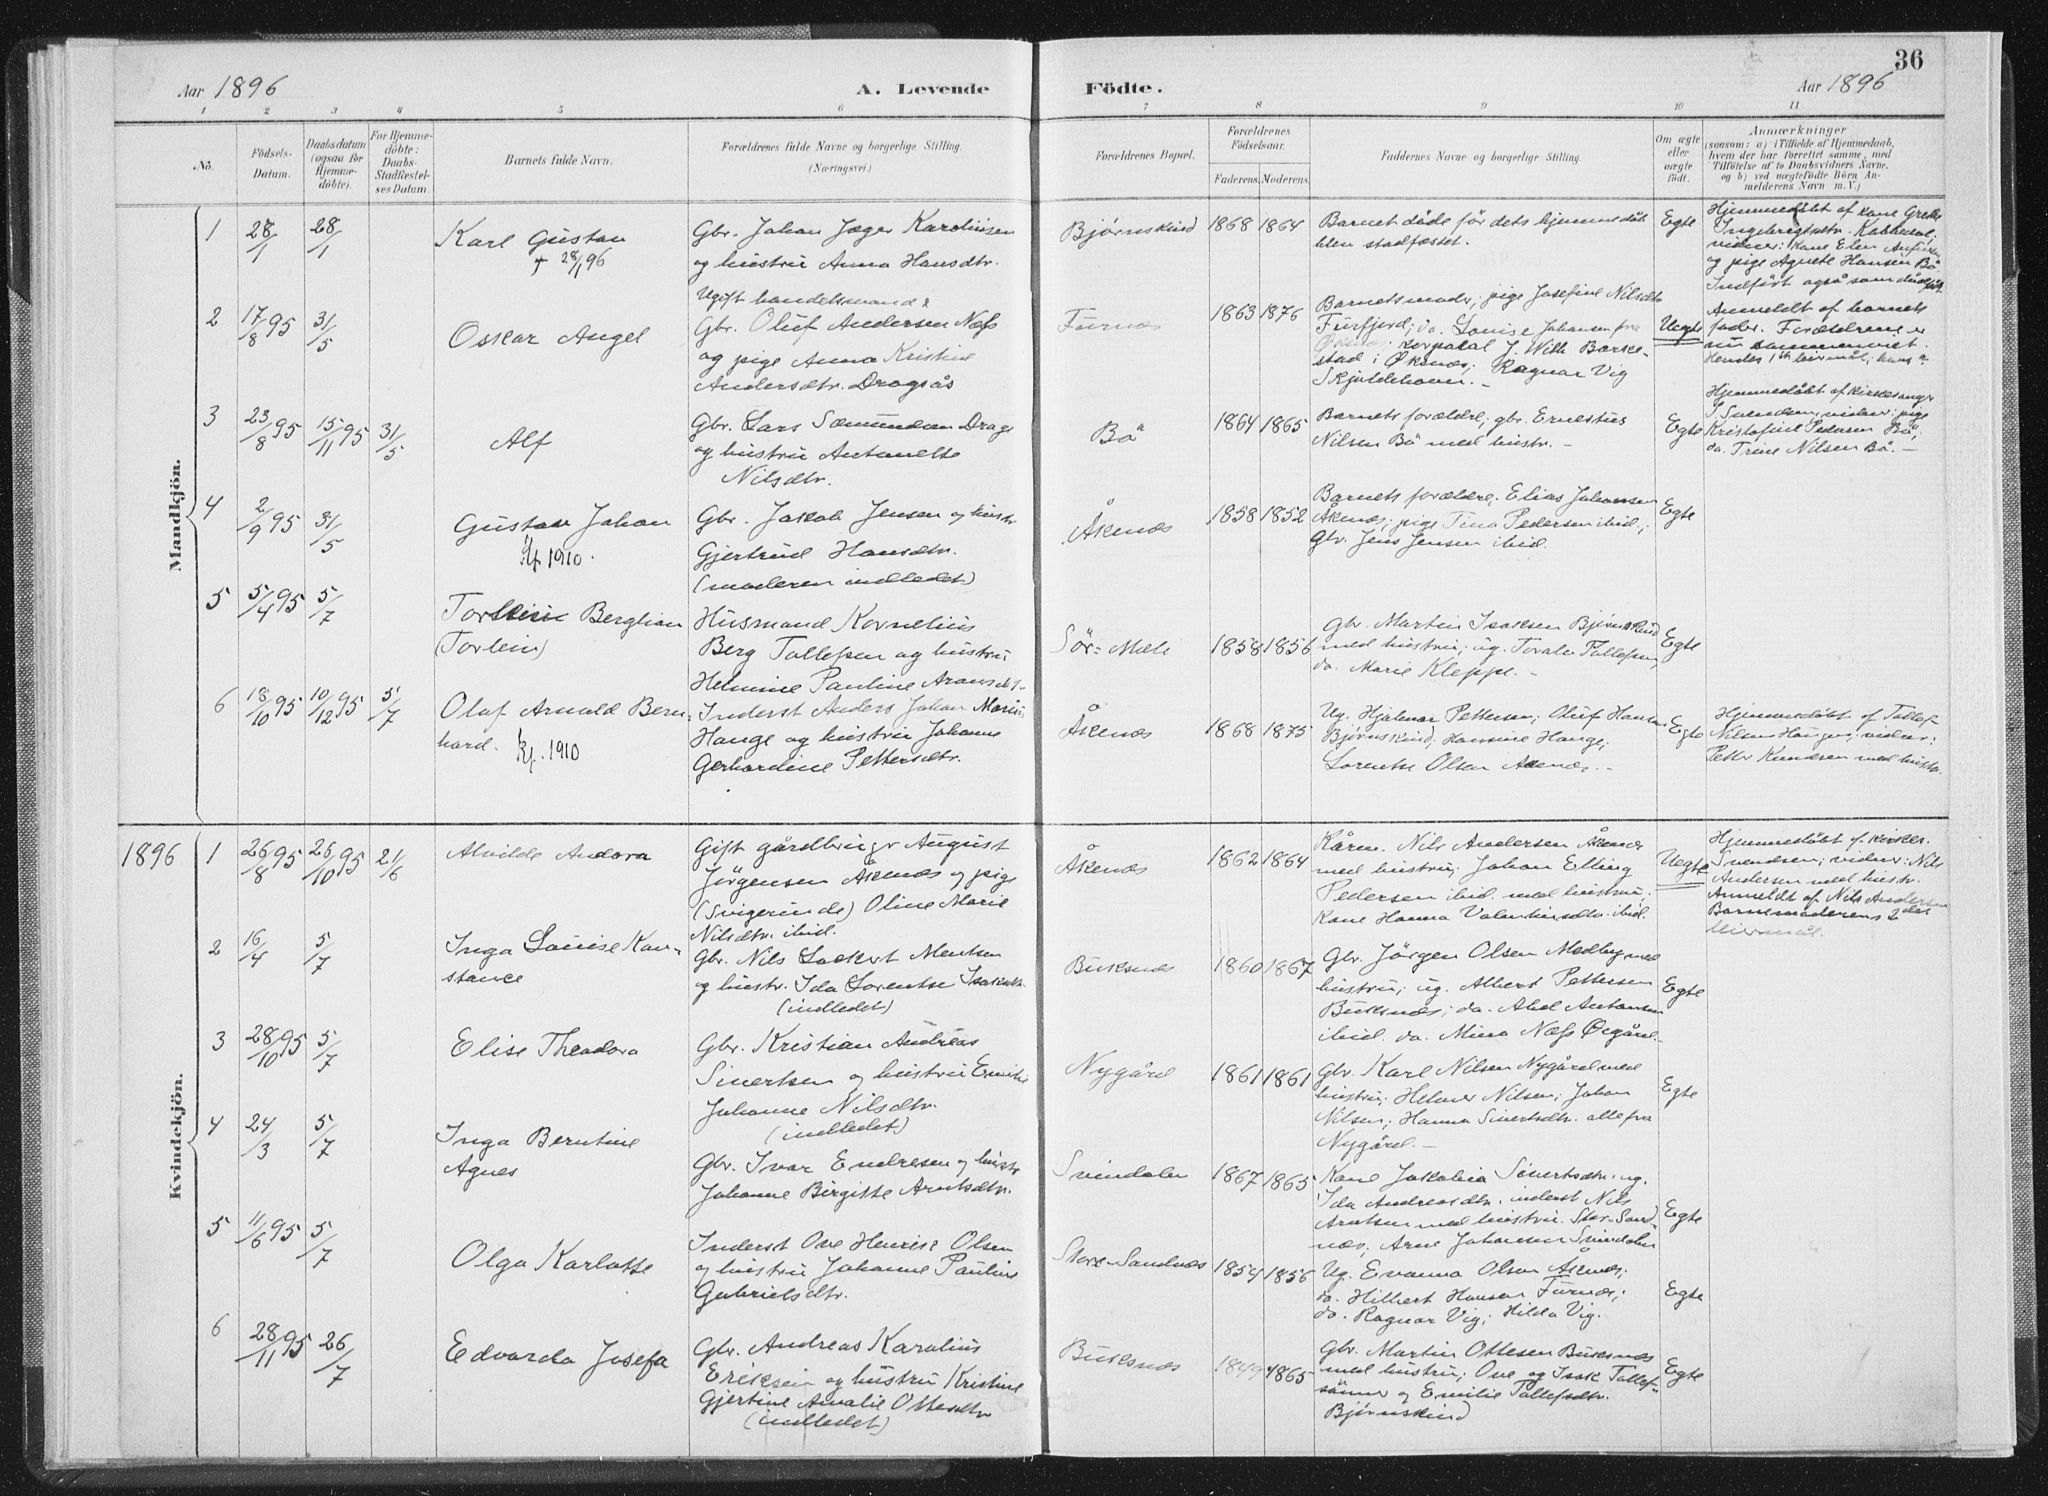 36
Aar 1896
A. Levende
Födte.
Aar 1896
1 2 3 4 5 6 7 8 9 10 11
No.
Födsels-
Datum.
Daabsdatum
(ogsaa for
Hjemme-
döbte).
For Hjemme-
döbte:
Daabs-
Stadfæstel-
ses Datum.
Barnets fulde Navn.
Forældrenes fulde Navne og borgerlige Stilling.
(Næringsvei)
Forældrenes Bopæl.
Forældrenes
Födselsaar.
Faderens. Moderens.
Faddernes Navne og borgerlige Stilling.
Om ægte
eller
uægte
födt.
Anmærkninger
(saasom: a) i Tilfælde af Hjemmedaab,
hvem der har forrettet samme, med
Tilföielse af to Daabsvidners Navne,
og b) ved uægtefödte Börn An-
melderens Navn m. V.)
Mandkjön.
1 28/1 28/1
Karl Gustav
+ 28/1 96
Gbr. Johan Jæger Karolinsen
og hustru Anna Hansdtr.
Bjørnskind
1868 1864
Barnet døde før dets hjemmedåb
blev stadfæstet.
Egte
Hjemmedöbt af kone Grethe
Ingebrigtsdtr. Kobbedal;
vidner: kone Elen
og pige Agnete Hansen Bö
Indført også som dødfødt
2 17/8 95 31/5
Oskar Angel
Ugift handelsmand &
Gbr. Oluf Andersen Næss
og pige Anna Kristine
Andersdtr. Dragsås
Furnæs
1863 1876
Barnets moder; pige Josefine Nilsdtr
Furfjord; do. Lovise Johansen fra
Øknes; korporal J. With Barke-
stad i Øksnes; Ragnar Vig
Skjoldehavn. -
Uegte
Anmeldt af barnets
fader. Forældrene er
nu sammenviet.
Hendes 1ste leiermål; hans
3 23/8 95 15/11 95 31/5
Alf
Gbr. Lars Sæmundsen Drage
og hustru Antonette
Nilsdtr.
Bö
1864 1865
Barnets forældre; gbr. Ernestus
Nilsen Bö med hustr. -
Egte
Hjemmedöbt af kirkesanger
S. Svendsen, vidner: pige
Kristofine Pedersen Bö;
do. Trine Nilsen Bö. -
4 2/9 95 31/5
Gustav Johan
Kf. 1910.
Gbr. Jakob Jensen og hustr
Gjertrud Hansdtr.
(moderen indledet)
Åkenæs
1858 1852
Barnets forældre; Elias Johansen
Åkenæs; pige Tina Pedersen ibid.;
Gbr. Jens Jensen ibid.
Egte
5 5/4 95 5/7
Berglian
(Torlein)
Husmand Kornelius
Berg Tollefsen og hustru
Helmine Pauline
Sör-Mele
1858 1856
Gbr. Martin Isaksen Bjørnskind
med hustru; ug. Tollefsen
do. Marie Kleppe. -
Egte
6 18/10 95 10/12 95 5/7
Olaf Arnold Bern-
hard. Kf. 1910
Inderst Anders Johan Marius
Hauge og hustru Johanne
Gerhardine Pettersdtr.
Åkenæs
1868 1875
Ug. Hjalmar Pettersen; Oluf Hansen
Bjørnskind; Hansine Hauge;
Lorentse Olsen Åkenæs. -
Egte
Hjemmedöbt af Tollef
Nilsen Haugen; vidner:
Petter Knudsen med hustr.
Kvindekjön.
1896
1 26/8 95 26/10 95 21/6
Alvilde Andora
Gift gårdbruger August
Jörgensen Åkenæs og pige
(Svigerinde) Oline Marie
Nilsdtr. ibid.
Åkenæs
1862 1864
Kårm. Nils Andersen Åkenæs
med hustru; Johan Elling
Pedersen ibid. med hustru;
Kone Hanna Valentinsdtr. ibid.
Uegte
Hjemmedöbt af kirkes.
Svendsen; vidner: Nils
Andersen med hustr.
Anmeldt af Nils Andersen
Barnemoderens 2det
leiermål.
2 16/4 5/7
Inga Lovise Kon-
stance
Gbr. Nils Lockert Mentsen
og hustr. Ida Lorentse Isaksdtr.
(indledet)
Buksnæs
1860 1867
Gbr. Jörgen Olsen Medby med
hustru; ug. Albert Pettersen
Buksnæs; do. Abel Antonsen
ibid. do. Mina Næss Ørgård. -
Egte
3 28/10 95 5/7
Elise Theodora
Gbr. Kristian Andreas
Sivertsen og hustru Emilie
Johanne Nilsdtr.
(indledet)
Nygård
1861 1861
Gbr. Karl Nilsen Nygård med
hustru; Helmer Nilsen; Johan
Nilsen; Hanna Sivertsdtr. alle fra
Nygård. -
Egte
4 24/3 5/7
Inga Berntine
Agnes
Gbr. Ivar Endresen og hustr
Johanne Birgitte Arntsdtr.
Svindalen
1867 1865
Kone Jakobia Sivertsdtr. ug.
Ida Andreasdtr. inderst Nils
Arntsen med hustru. Stor-Sand-
næs; Arne Johansen Svindalen
Egte
5 11/6 95 5/7
Olga Karlotte
Inderst Ove Henrik Olsen
og hustru Johanne Pauline
Gabrielsdtr.
Store-Sandnæs
1854 1856
Ug. Evanna Olsen Åkenæs;
do. Hilbert Hansen Furnæs;
do. Ragnar Vig; Hilda Vig.
Egte
6 28/11 95 26/7
Edvarda Josefa
Gbr. Andreas Karolius
Eriksen og hustru Kristine
Gjertine Amalie Ottesdtr
(indledet)
Buksnæs
1849 1865
Gbr. Martin Ottesen Buksnæs
med hustru; Ove og Isak Tollef-
sönner og Emilie Tollefsdtr.
Bjørnskind
Egte